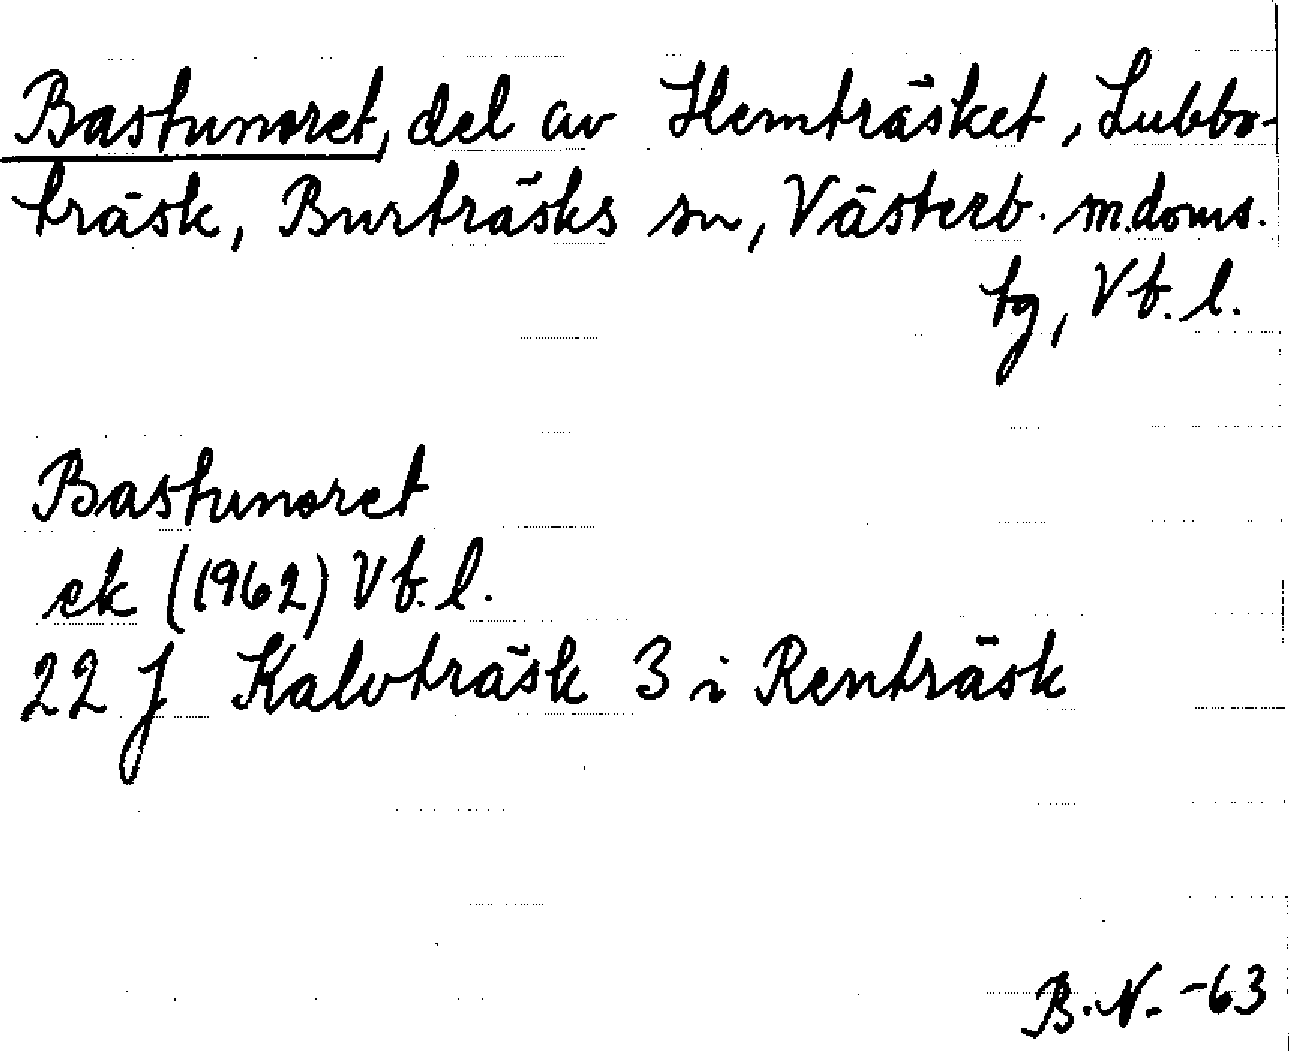 Bastunoret, del av Hemträsket, Lubbo-
träsk, Burträsks sn, Västerb. m. doms.
tg, Vb. l.
Bastunoret
ek (1962) Vb. l.
22 J Kalvträsk 3 i Renträsk
B. N. -63